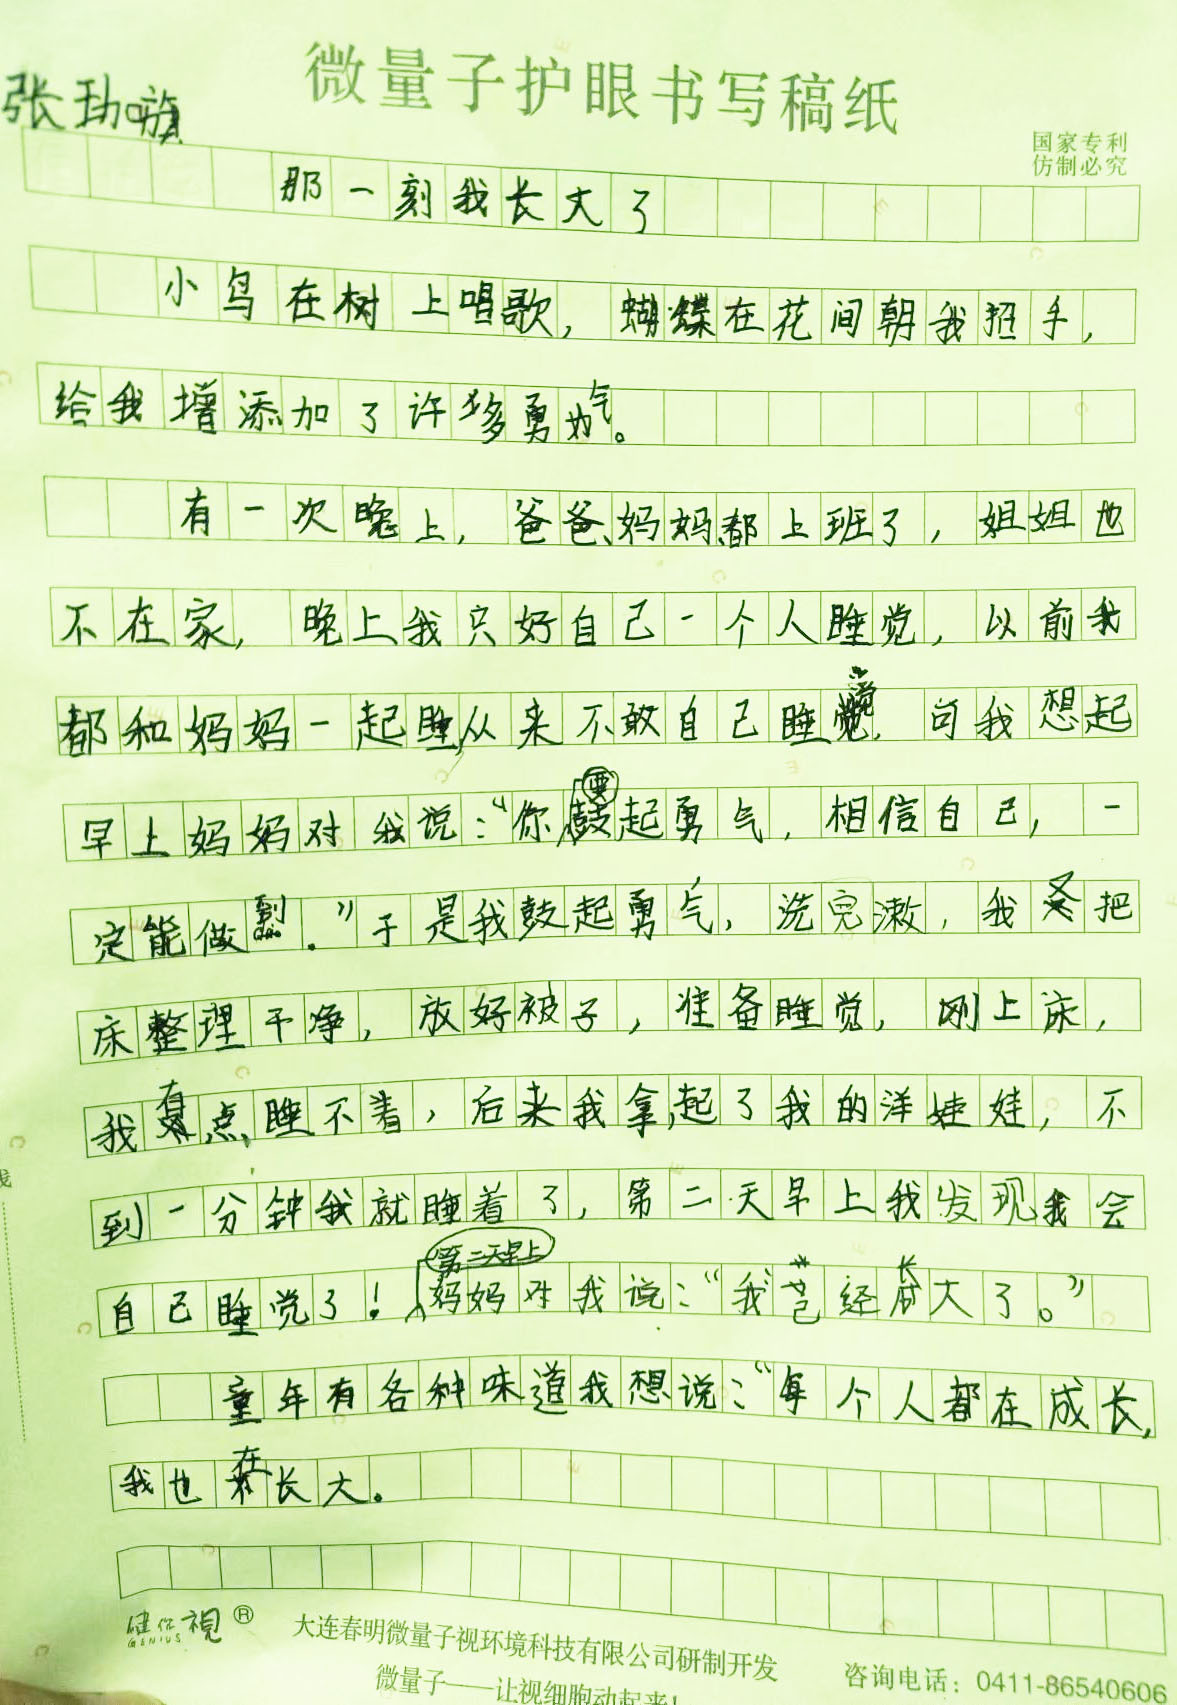 微量子护眼书写稿纸
国家专利
仿制必究
张劢旗
那一刻我长大了
小鸟在树上唱歌，蝴蝶在花间朝我招手，
给我增添加了许多勇气。
有一次晚上，爸爸、妈妈都上班了，姐姐也
不在家，晚上我只好自己一个人睡觉，以前我
都和妈妈一起睡，从来不敢自己睡觉，可我想起
早上妈妈对我说：“你要鼓起勇气，相信自己，一
定能做到。”于是我鼓起勇气，洗完漱，我又把
床整理干净，放好被子，准备睡觉，刚上床，
我有点睡不着，后来我拿起了我的洋娃娃，不
到一分钟我就睡着了，第二天早上我发现我会
自己睡觉了！第二天早上妈妈对我说：“我已经长大了。”
童年有各种味道我想说：“每个人都在成长，
我也在长大。
健你視®
GENIUS
大连春明微量子视环境科技有限公司研制开发
微量子——让视细胞动起来！
咨询电话：0411-86540606